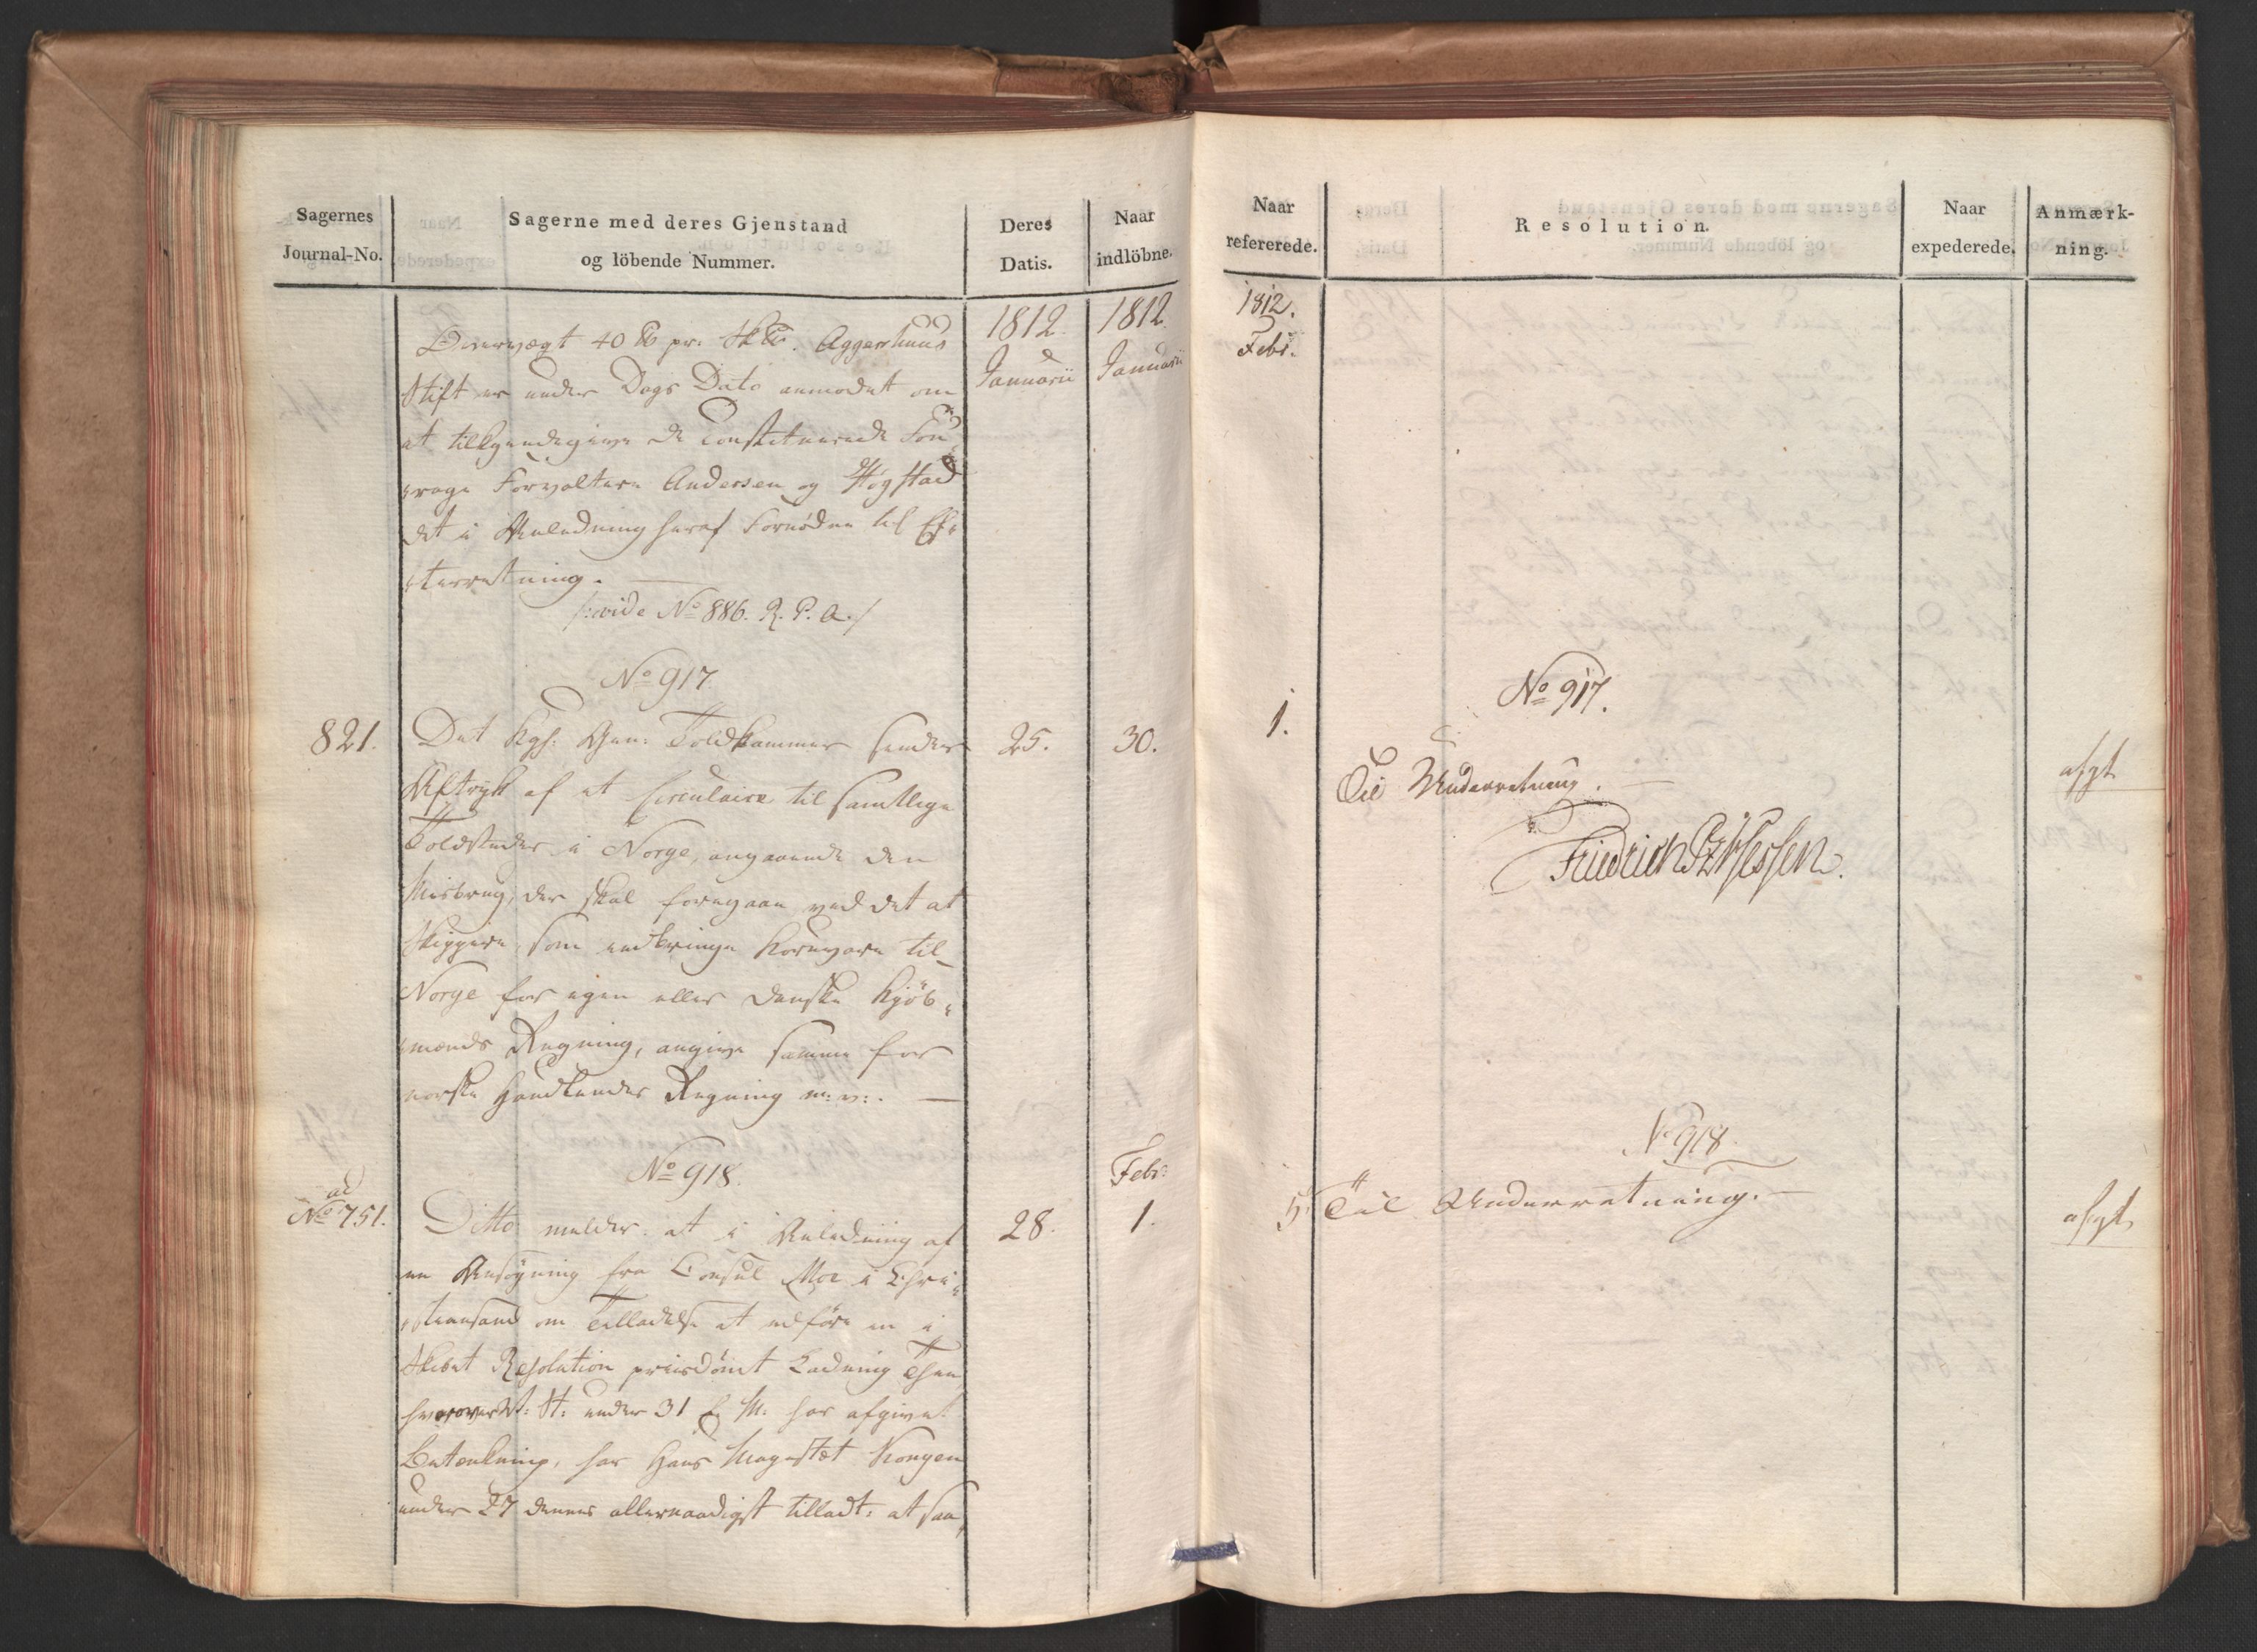 Sagernes
Journal-No.
Sagerne med deres Gjenstand
og löbende Nummer.
Deres
Datis.
Naar
indlöbne.
1812.
Januarii
1812
Januarii
Overvægt 40 ℔ pr: Sk℔. Aggershuus
Stift er under Dags Dato anmodet om
at tilkjendegive de constituerede Fou-
rage Forvaltere Andersen og Høgstad
det i Anledning heraf Fornødne til Ef-
terretning. —
/: vide No 886. R. P. A. /
No 917
821.
Det kgl: Gen: Toldkammer sender
25.
30.
Aftryk af et Circulaire til samtlige
Toldsteder i Norge, angaaende den
Misbrug, der skal foregaae ved det at
Skippere, som indbringe Kornvare til
Norge for egen eller danske Kjöb-
mænds Regning, angive samme for
norske Handlendes Regning m: v:. —
No 918.
Febr:
ad
No 751.
Ditto melder at i Anledning af
28.
1.
en Ansøgning fra Consul Moe i Chri-
stiansand om Tilladelse at udföre en i
Skibet Resolution priisdömt Ladning Thee
hvorover St: under 31 f. M. har afgivet
Betænkning, har Hans Majestæt Kongen
under 27 dennes allernaadigst tilladt: at saa
Naar
refererede.
Resolution.
Naar
expederede.
Anmærk-
ning.
1812.
Febr.
No 917.
1.
Til Underretning. —
afgt
Friedrich PzHessen.
No 918.
5.
Til Underretning. —
afgt